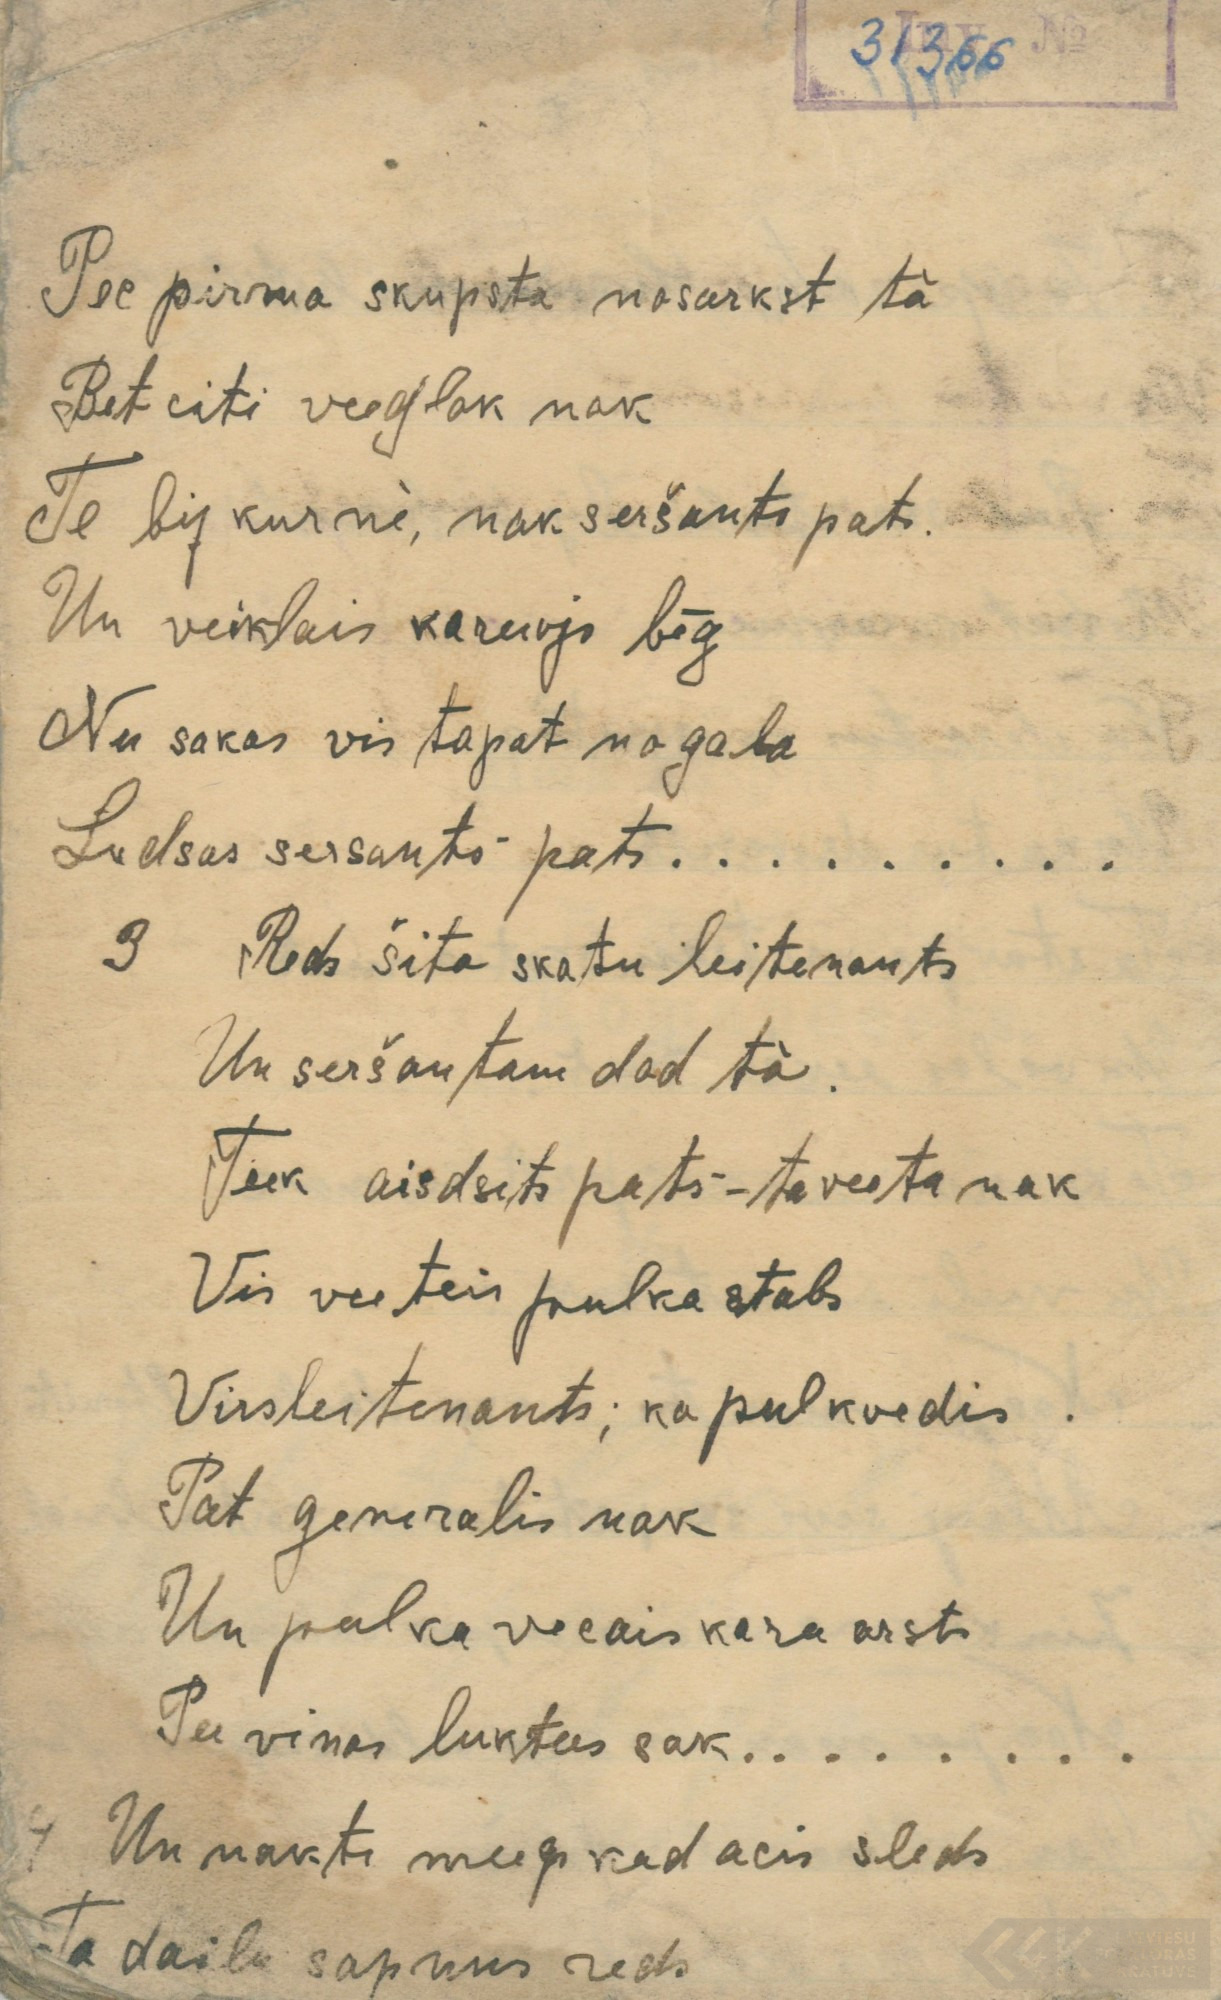 31366
Инв. №
Pee pirma skupsta nosarkst tà
Bet citi veeglak nak
Te bij kurnè, nak seršants pats.
Un veiklais kareivjs bēg
Nu sakas vis tapat no gala
Ludsas sersants pats..........
3 Reds šito skatu leitenants
Un seršantam dod tà.
Teek aisdsits pats - ta veeta nak
Vis veeteis pulka stabs
Virsleitenants; ka pulkvedis.
Pat generalis nak
Un pulka vecais kara arsts
Pee vinas luktees sak........
4 Un nakti meegs kad acis sleds
Ta dailu sapnus reds